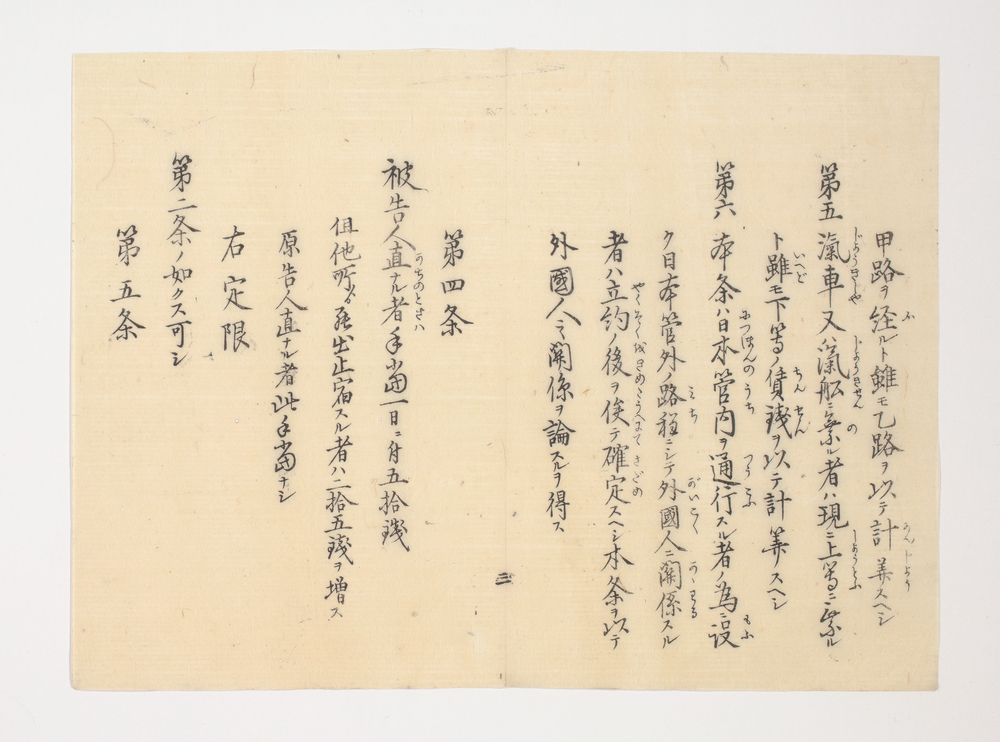 甲路ヲ経ルト雖モ乙路ヲ以テ計算スヘシ
第五 滊車又ハ滊舩ニ乗ル者ハ現ニ上等ニ乗ル
ト雖モ下等ノ賃銭ヲ以テ計算スヘシ
第六 本条ハ日本管内ヲ通行スル者ノ為ニ設
ク日本管外ノ路程ニシテ外國人ニ関係スル
者ハ立約ノ後ヲ俟テ確定スヘシ本条ヲ以テ
外國人ニ関係ヲ論スルヲ得ス
三
第四条
被告人直ナル者手当一日ニ付五拾銭
但他所ゟ罷出止宿スル者ハ二拾五銭ヲ増ス
原告人直ナル者此手当ナシ
右定限
第二条ノ如クス可シ
第五条